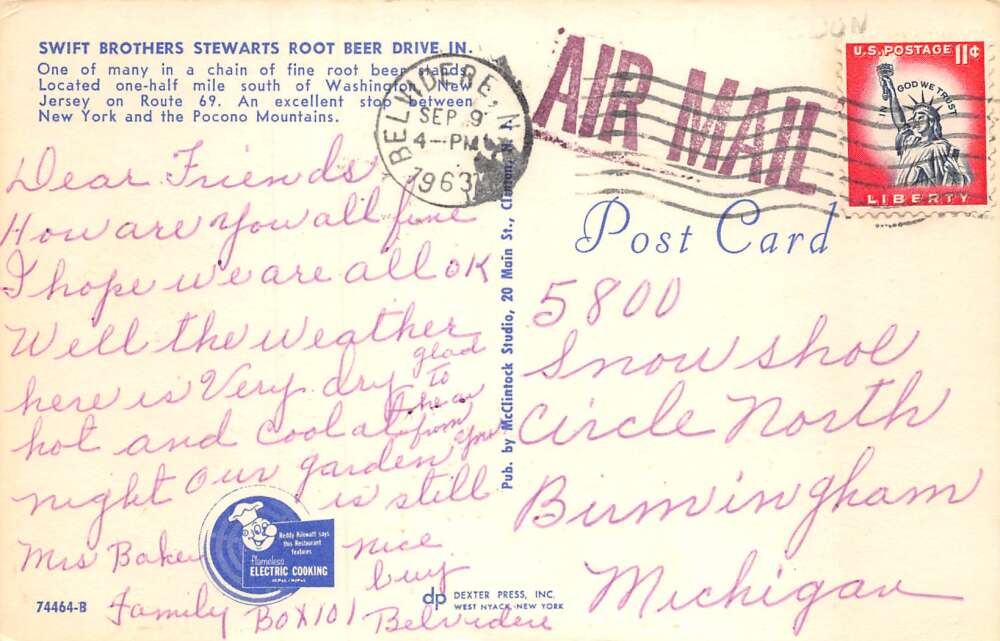 SWIFT BROTHERS STEWARTS ROOT BEER DRIVE IN.
One of many in a chain of fine root beer stands.
Located one-half mile south of Washington, New
Jersey on Route 69. An excellent stop between
New York and the Pocono Mountains.
BELVIDERE, N.J.
SEP 9
4-PM
1963
AIR MAIL
U.S. POSTAGE 11¢
IN GOD WE TRUST
LIBERTY
Post Card
Dear Friends
How are you all fine
I hope we are all OK
Well the weather
here is Very dry
hot and cool at
night Our garden
is still
nice
glad
to
hear
from
you
Mrs Baker
Family
Box 101
Belvidere
5800
Snowshoe
Circle North
Birmingham
Michigan
Pub. by McClintock Studio, 20 Main St., Clinton, N. J.
Reddy Kilowatt says
this Restaurant
features
flameless
ELECTRIC COOKING
74464-B
dp DEXTER PRESS, INC.
WEST NYACK, NEW YORK